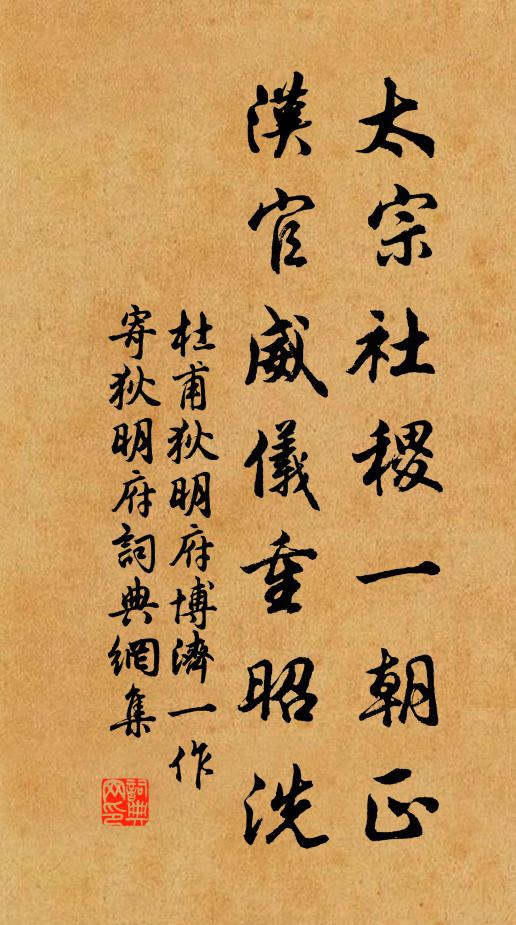 太宗社稷一朝正
漢官威儀重昭洗
杜甫狄明府博濟一作
寄狄明府詞典網集
詞典网印